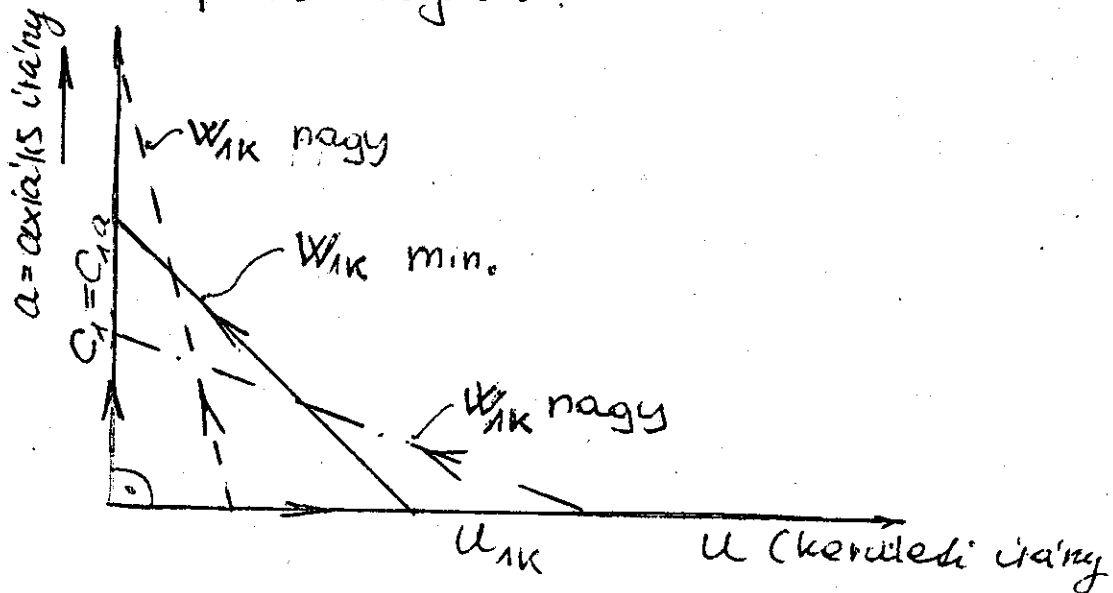 a = axiális irány
W1K nagy
W1K min.
C1 = C1a
W1K nagy
U1K
U (kerületi irány